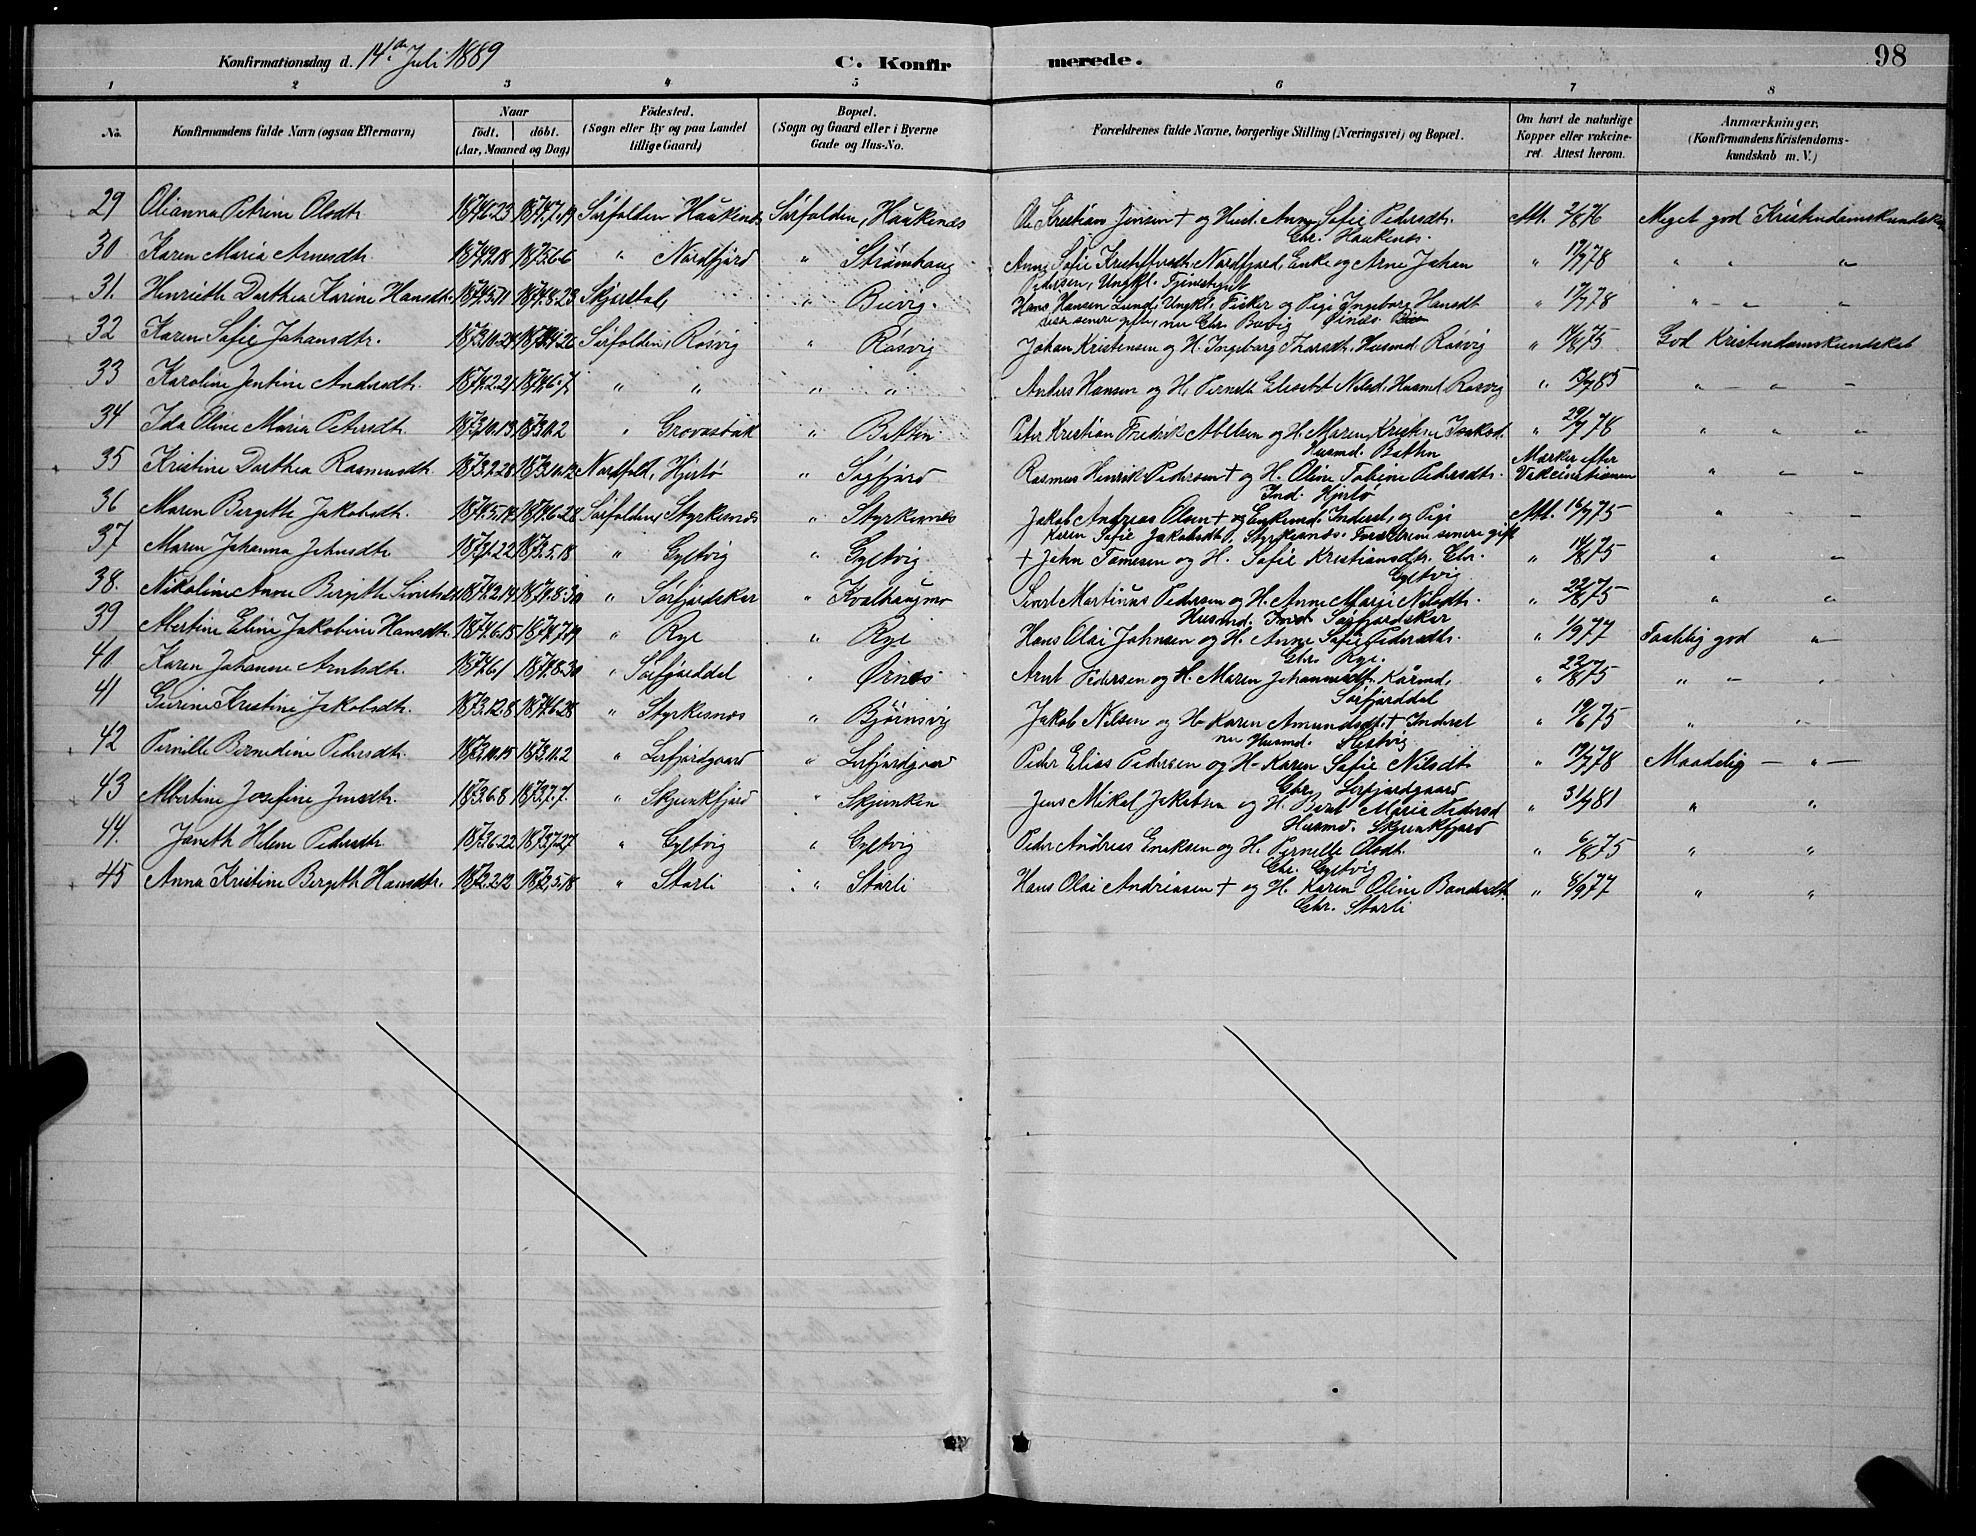 Konfirmationsdag d. 14de Juli 1889
C. Konfirmerede.
98
1 2 3 4 5 6 7 8
No.
Konfirmandens fulde Navn (ogsaa Efternavn)
Naar
födt. | döbt.
(Aar, Maaned og Dag)
Födested.
(Sogn eller By og paa Landet
tillige Gaard)
Bopæl.
(Sogn og Gaard eller i Byerne
Gade og Hus-No.
Forældrenes fulde Navne, borgerlige Stilling (Næringsvei) og Bopæl.
Om havt de naturlige
Kopper eller vakcine-
ret. Attest herom.
Anmærkninger.
(Konfirmandens Kristendoms-
kundskab m. V.)
29 Olianna Petrine Olsdtr. 1874.6.23 1874.7.19 Sørfolden, Haukenes Sørfolden, Haukenæs Ole Kristian Jensen + og Hust. Anne Sofie Pedersdtr. Att. 2/8 76 Meget god Kristendomskundskab
Gbr. Haukenes.
30 Karen Maria Arnesdtr. 1874.9.18 1875.6.6 " Nordfjord " Strømhaug Anne Sofie Kristoffersdtr. Nordfjord, Enke og Arne Johan " 17/9 78 " " "
Pedersen, Ungkl. Tjenestegut
31. Henriette Dorthea Karine Hansdtr. 1874.5.11 1874.8.23 Skjerstad, " Buvig. Hans Hansen Lund, Ungkl. Fisker og Pige Ingeborg Hansdt " 17/9 78 " - " - "
disse senere gifte, nu Gbr. Buvig
32 Karen Sofie Johansdtr. 1873.10.24 1874.4.26 Sørfolden, Røsvig " Røsvig Johan Kristensen og H. Ingeborg Thorsdt. Husmd. Røsvig " 14/8 75 God Kristendomskundskab
33 Karoline Jentine Andersdtr. 1874.2.21 1874.6.7 " " " " Anders Hansen og H. Pernelle Elisebet Nilsd. Husmd Røsvig " 13/9 85 " - " - "
34 Ida Oline Maria Petersdtr. 1873.10.13 1873.11.2 " Grovasbak " Botten Peter Kristian Fredrik Abelsen og H. Maren Kristine Isaksd. " 29/9 78 " " "
Husmd. Botten
35 Kristine Dorthea Rasmusdtr. 1873.2.28 1873.10.12 Nordfold, Hjertø " Sagfjord Rasmus Henrik Pedersen + og H. Oline Tobine Pedersdtr. Mærker efter " - "
Ind. Hjertø Vakcinationen
36 Maren Bergitte Jakobsdtr. 1874.5.14 1874.6.28 Sørfolden, Styrkesnæs " Styrkesnæs Jakob Andreas Olsen + og Enkemd. Inderst, og Pige Att. 16/9 75 " - "
Karen Sofie Jakobsdtr, Styrkesnæs. Forældrene senere gift
37 Maren Johanna Johnsdtr. 1873.1.22 1873.5.18 " Gyltvig " Gyltvig + John Tomesen og H. Sofie Kristiansdtr. Gbr. " 14/8 75 " "
Gyltvig
38. Nikoline Anne Bergitte Sivertsd. 1874.2.14 1874.8.30 " Sørfjordskar " Kvalhaugmo Sivert Martinus Pedersen og H. Anne Marie Nilsdtr. " 22/8 75 " "
Husmd. Sørfjordskar
39 Albertine Eline Jakobine Hansdtr. 1874.6.15 1874.7.19 " Rye " Rye Hans Olai Johnsen og H. Anne Sofie Pedersdtr. " 1/9 77 Taalelig god "
Gbr. Rye.
40. Karen Johanne Arntsdtr. 1874.6.1 1874.8.30 " Sørfjorddal " Ørnes Arnt Pedersen og H. Maren Johannesdtr. Kårmd, " 22/8 75 " " - "
Sørfjorddal
41 Gurine Kristine Jakobsdtr. 1873.12.8 1874.6.28 " Styrkesnæs " Bjørnsvig Jakob Nilsen og H. Karen Amundsdt. + Inderst " 19/6 75 " "
nu Husmd.
42 Pernille Bernedine Pedersdtr. 1873.10.15 1873.11.2 " Lerfjordgaard " Lerfjordgaard Peder Elias Pedersen og H. Karen Sofie Nilsdt. " 17/9 78 Maadelig - " -
Gbr. Lerfjordgaard
43 Albertine Josefine Jensdtr. 1873.6.8 1873.7.7. " Skjunkfjord " Skjunken Jens Mikal Jakobsen og H. Berit Maria Pedersd " 31/9 81 " "
Husmd. Skjunkfjord
44. Janeth Helene Pedersdtr. 1873.6.22 1873.7.27 " Gyltvig " Gyltvig Peder Andreas Eriksen og H. Pernelle Olsdt. " 6/8 75 " "
Gbr. Gyltvig
45 Anna Kristine Bergitte Hansdtr. 1872.2.12 1872.5.18 " Storli " Storli Hans Olai Andreasen + og H. Karen Oline Bendiksdtr. " 8/9 77 " "
Gbr. Storli